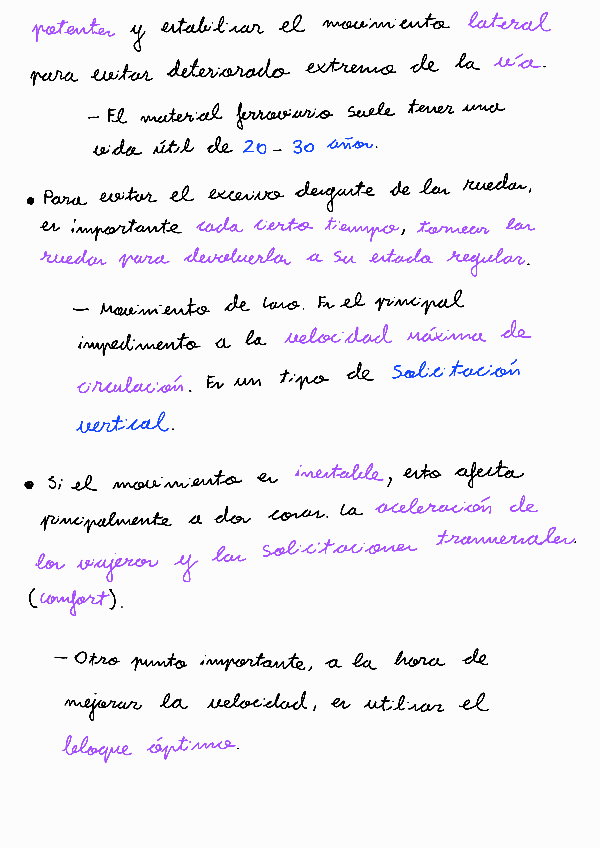 potentes y estabilizar el movimiento lateral
para evitar deteriorado extremo de la vía.
- El material ferroviario suele tener una
vida útil de 20 - 30 años.
• Para evitar el excesivo desgaste de las ruedas,
es importante cada cierto tiempo, tornear las
ruedas para devolverlas a su estado regular.
- Movimiento de lazo. Es el principal
impedimento a la velocidad máxima de
circulación. Es un tipo de solicitación
vertical.
• Si el movimiento es inestable, esto afecta
principalmente a dos cosas. La aceleración de
los viajeros y las solicitaciones transversales.
(comfort).
- Otro punto importante, a la hora de
mejorar la velocidad, es utilizar el
bloque óptimo.